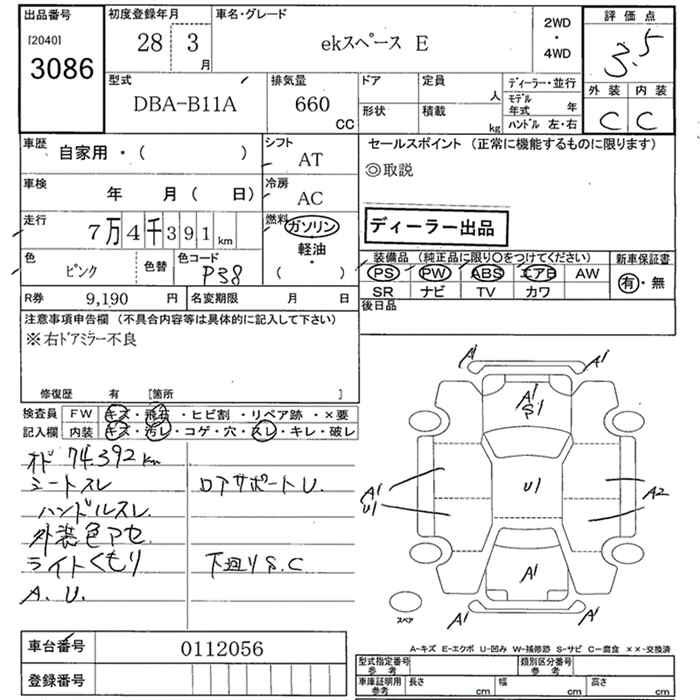 出品番号
[2040]
3086
初度登録年月
28 3
月
車名・グレード
ekスペース E
2WD
・
4WD
評価点
3.5
外装 内装
C C
型式
DBA-B11A
排気量
660
CC
ドア
定員
人
形状
積載
kg
ディーラー・並行
モデル
年式 年
ハンドル 左・右
車歴
自家用・( )
シフト
AT
車検
年 月( 日)
冷房
AC
走行
7万4千391km
燃料
ガソリン
・
軽油
( )
色
ピンク
色替
色コード
P38
R券 9,190 円
名変期限 月 日
セールスポイント (正常に機能するものに限ります)
◎取説
ディーラー出品
装備品 (純正品に限り〇をつけてください)
PS PW ABS エアB AW
SR ナビ TV カワ
新車保証書
有・無
後日品
注意事項申告欄 (不具合内容等は具体的に記入して下さい)
※右ドアミラー不良
修復歴 有 [箇所 ]
検査員 FW キズ・飛石・ヒビ割・リペア跡・×要
記入欄 内装 キズ・汚レ・コゲ・穴・スレ・キレ・破レ
オド 74.392 km
シートスレ
ハンドルスレ
外装色アセ
ライトくもり
A. U.
ロアサポートU.
下廻りS.C
A1 A1
A1
S1
A1
U1
U1
A2
A1
A1 A1
スペア
A-キズ E-エクボ U-凹み W-補修跡 S-サビ C-腐食 ××-交換済
車台番号 0112056
登録番号
型式指定番号
参考
類別区分番号
参考
車庫証明用
参考
長さ cm
幅 cm
高さ cm